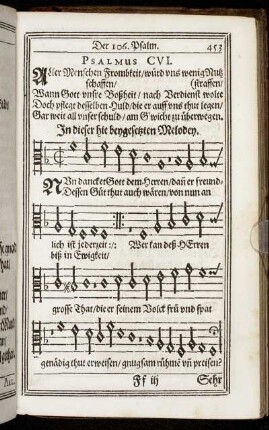 Der 106. Psalm. 453
PSALMUS CVI.
Aller Menschen Frombkeit/würd vns wenig Nutz
schaffen/ (straffen/
Wann Gott vnsre Boßheit/ nach Verdienst wolte
Doch pflegt desselben Huld/die er auff vns thut legen/
Gar weit all vnser schuld/ am G'wicht zu überwegen.
In dieser hie beygesetzten Melodey.
NVn dancket Gott dem Herren/dañ er freund-
Dessen Güt thut auch wären/von nun an
lich ist jederzeit :/: Wer kan deß HErren
biß in Ewigkeit/
grosse That/die er seinem Volck frü vnd spat
genädig thut erweisen/ gnugsam rühmē vñ preisen?
Ff iij Sehr